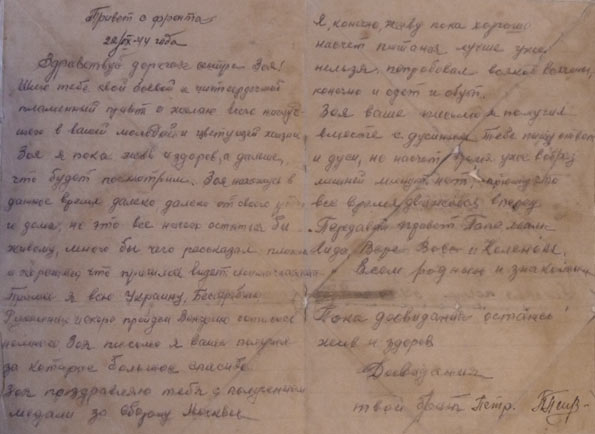 Привет с фронта
22/IX-44 года
Здравствуй дорогая сестра Зоя!
Шлю тебе свой боевой и чистосердечный
пламенный привет и желаю всего наилуч-
шего в вашей молодой и цветущей жизни.
Зоя я пока жив и здоров, а дальше,
что будет посмотрим. Зоя нахожусь в
данное время далеко далеко от своего
и дома, но это все ничего остаться бы
живому, много бы чего рассказал плохо
и хорошего что пришлось видеть
я всю Украину, Бессарабию
и скоро пройдем
Зоя письмо я ваше получил
за которое большое спасибо.
Зоя поздравляю тебя с получением
медали за оборону Москвы
Я, конечно, живу пока хорошо
насчет питанья лучше уже
нельзя, попробовал всякой всячины,
конечно и одет и обут.
Зоя ваше письмо я получил
вместе с дусиным тебе пишу ответ
и дуси, но насчет время уже в обрез
лишней минуты нет, потому что
все время движемся вперед
Передавай привет Тапе
Вере Васи и
Всем родным и знакомым
Пока досвидания остаюсь
жив и здоров
Досвидания
твой брат Петр.